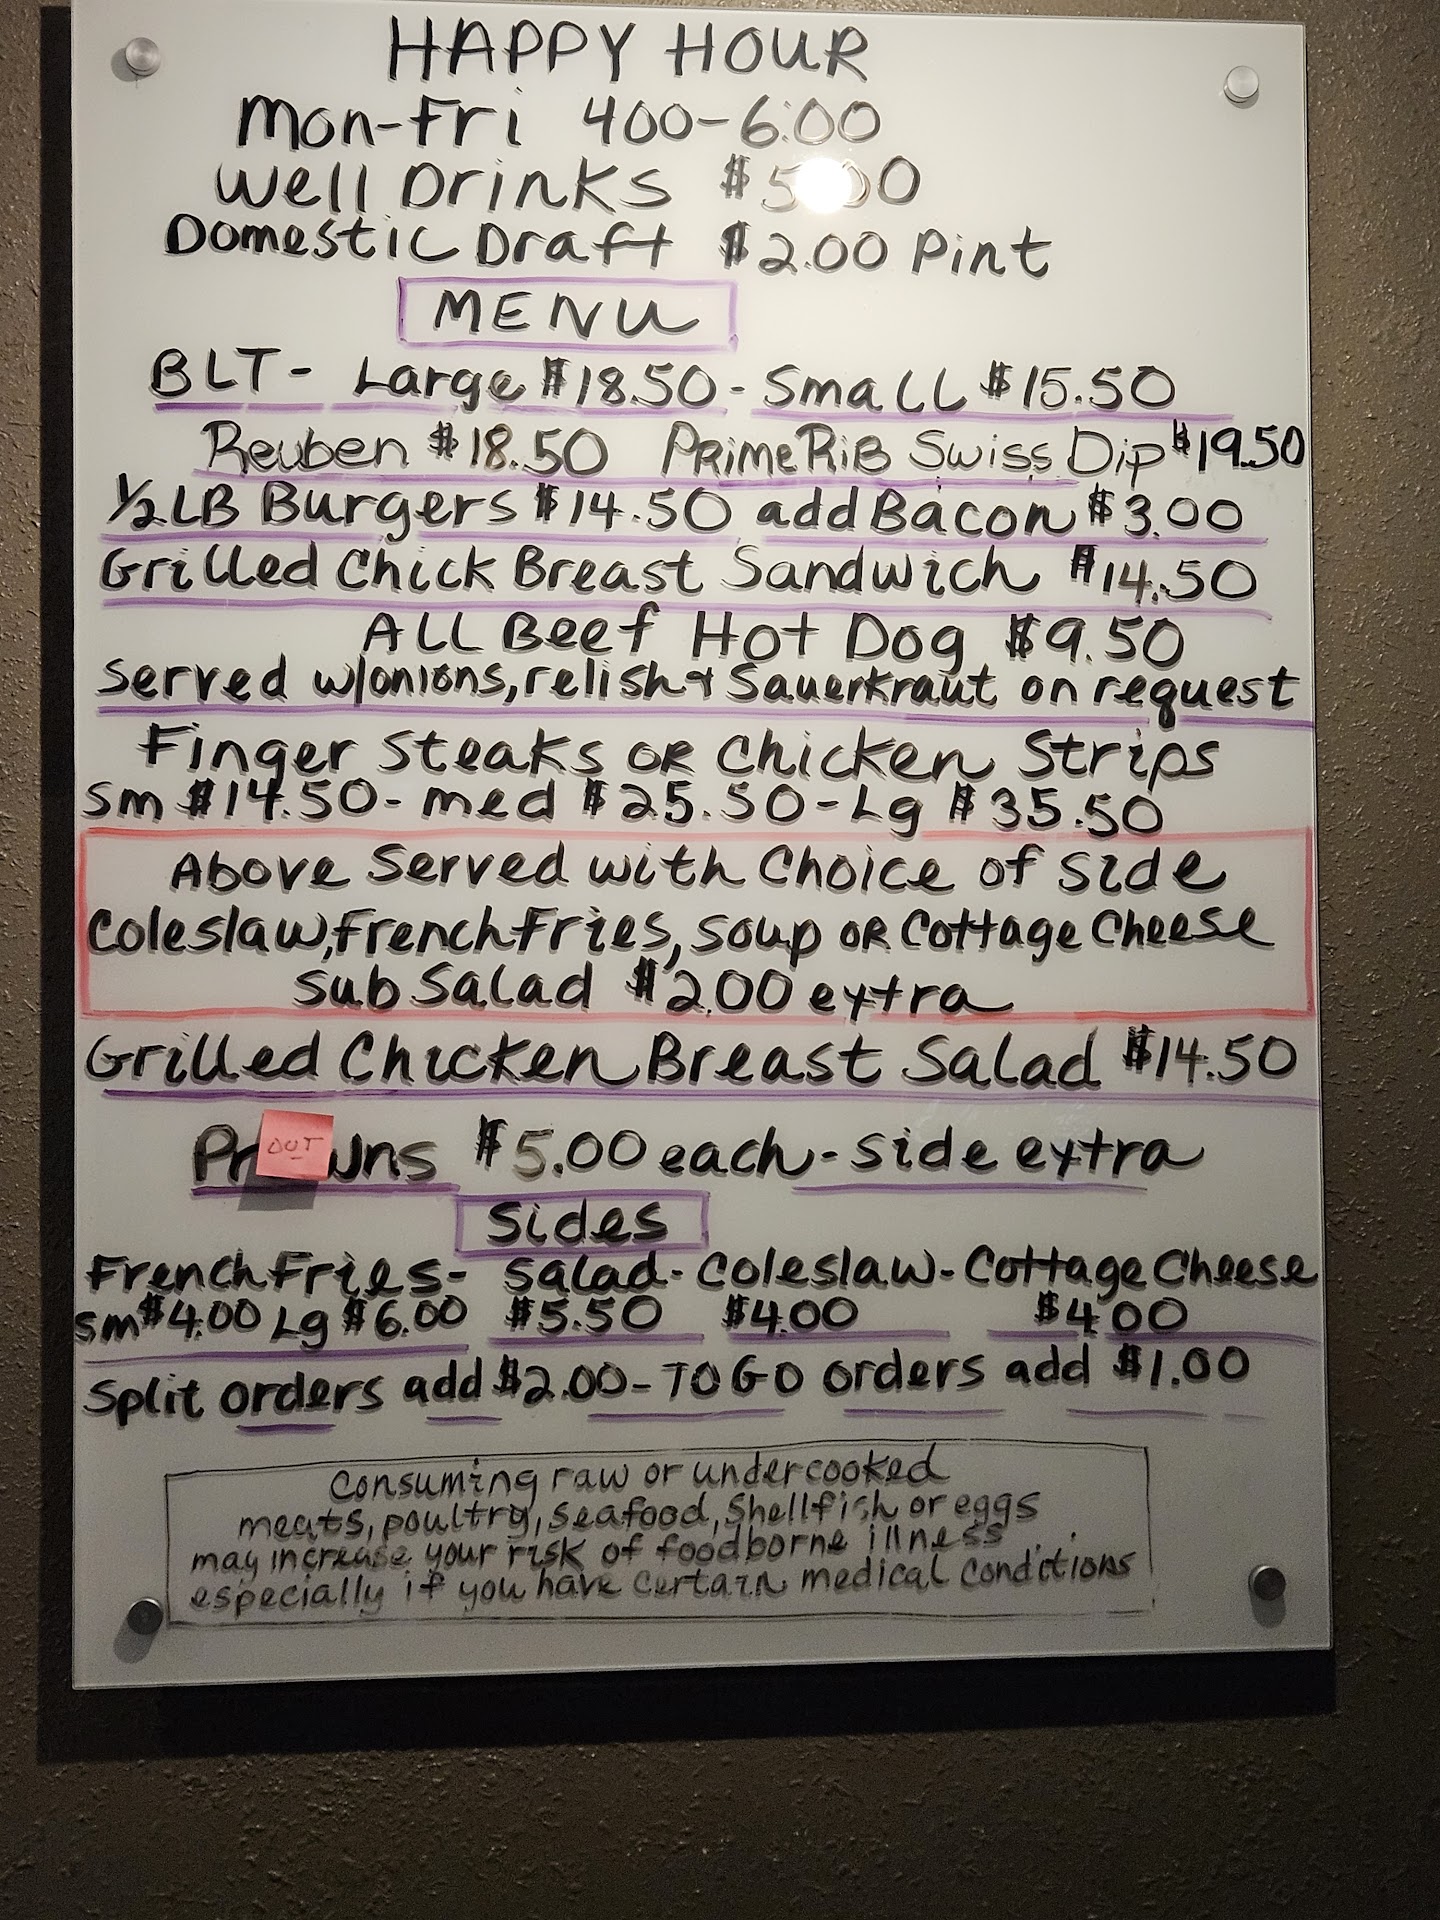 HAPPY HOUR
Mon-Fri 400-6:00
Well Drinks $5.00
Domestic Draft $2.00 Pint
MENU
BLT- Large $18.50 - Small $15.50
Reuben $18.50 PRimeRiB Swiss Dip $19.50
1/2 LB Burgers $14.50 add Bacon $3.00
Grilled Chick Breast Sandwich $14.50
ALL Beef Hot Dog $9.50
Served w/onions, relish & Sauerkraut on request
Finger Steaks OR Chicken Strips
Sm $14.50- med $25.50-Lg $35.50
Above Served with Choice of Side
Coleslaw, French Fries, soup OR Cottage Cheese
Sub Salad $2.00 extra
Grilled Chicken Breast Salad $14.50
Prawns $5.00 each - side extra
OUT
Sides
French Fries- Salad- Coleslaw- Cottage Cheese
sm $4.00 Lg $6.00 $5.50 $4.00 $4.00
Split orders add $2.00- TO GO orders add $1.00
Consuming raw or undercooked
meats, poultry, seafood, Shellfish or eggs
may increase your risk of foodborne illness
especially if you have certain medical conditions